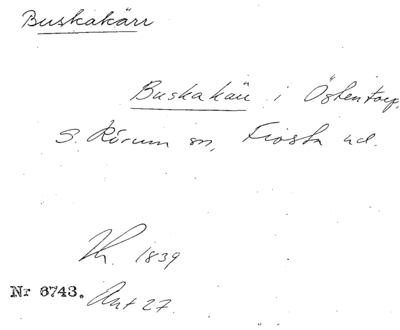 Buskakärr
Buskakärr i Östentorp,
S. Rörum sn, Frosta hd.
Th. 1839
Nr 6743. Ant 27.